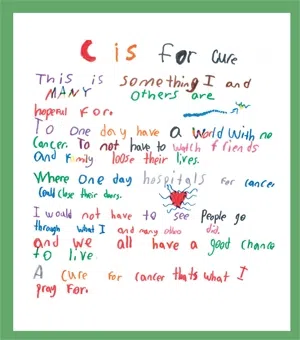 C is for cure
This is something I and
MANY others are
hopeful For.
To one day have a World With no
Cancer. To not have to watch friends
And Family loose their lives.
Where one day hospitals For cancer
Could close their doors.
I would not have to see People go
through what I and many others did.
and we all have a good chance
to live.
A cure for cancer thats what I
pray For.